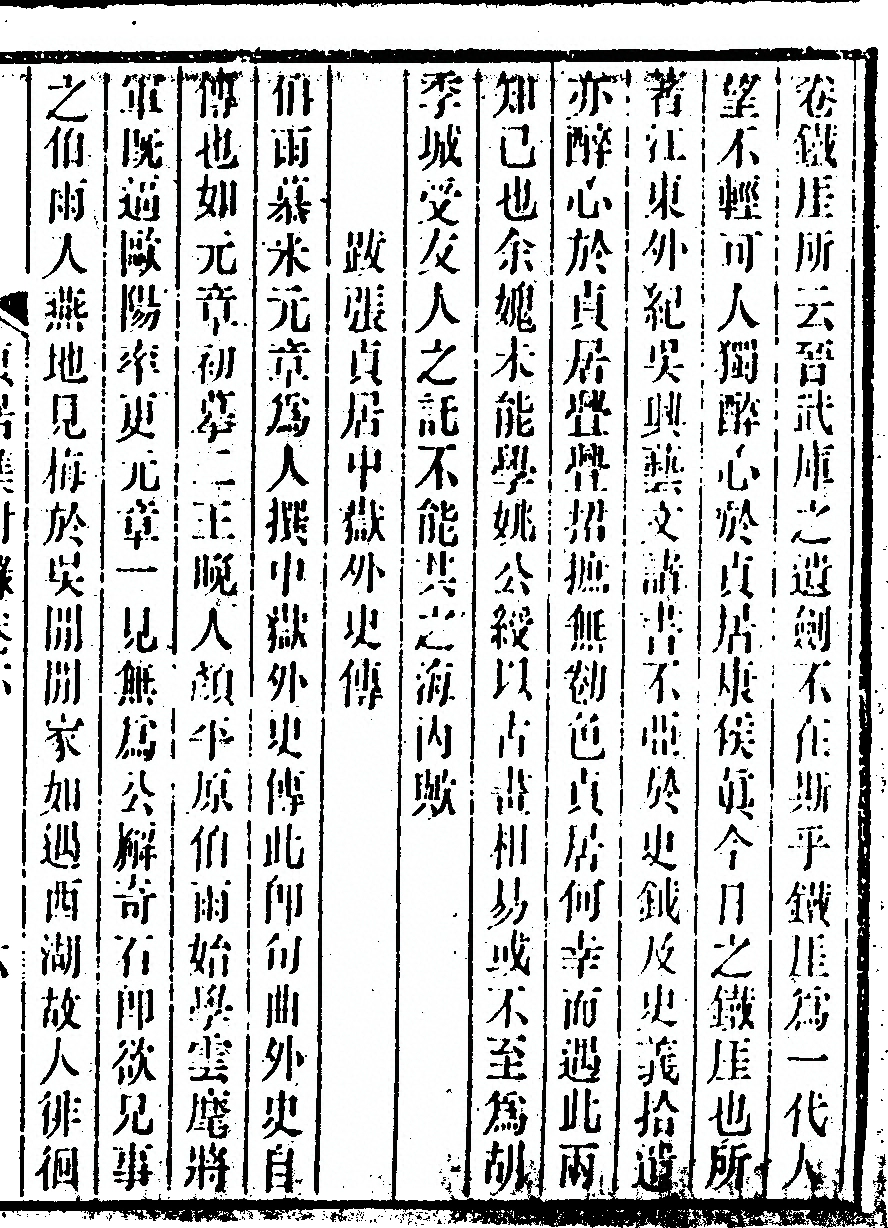 卷鐵厓所云晉武庫之遺劍不在斯乎鐵厓爲一代人
望不輕可人獨醉心於貞居康侯眞今日之鐵厓也所
著江東外紀吳興藝文諸書不亞於史鉞及史義拾遺
亦醉心於貞居舋舋招摭無勌色貞居何幸而遇此兩
知己也余媿未能學姚公綬以古畫相易或不至爲胡
季城受友人之託不能共之海内歟
跋張貞居中嶽外史傳
伯雨慕米元章爲人撰中嶽外史傳此卽句曲外史自
傳也如元章初摹二王晚人顏平原伯雨始學雲麾將
軍旣逼歐陽率更元章一見無爲公廨奇石卽欲兄事
之伯雨人燕地見梅於吳閒閒家如遇西湖故人徘徊
貞居集附錄卷